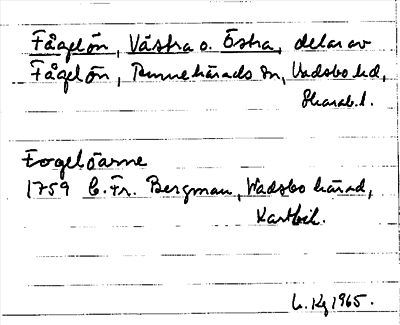 Fågelön, Västra o. Östra, delar av
Fågelön, Runnehärads sn, Vadsbo hd,
Skarab. l.
Fogelöarne
1759 C. Fr. Bergman, Wadsbo härad,
Kartbih.
L. Kg 1965.